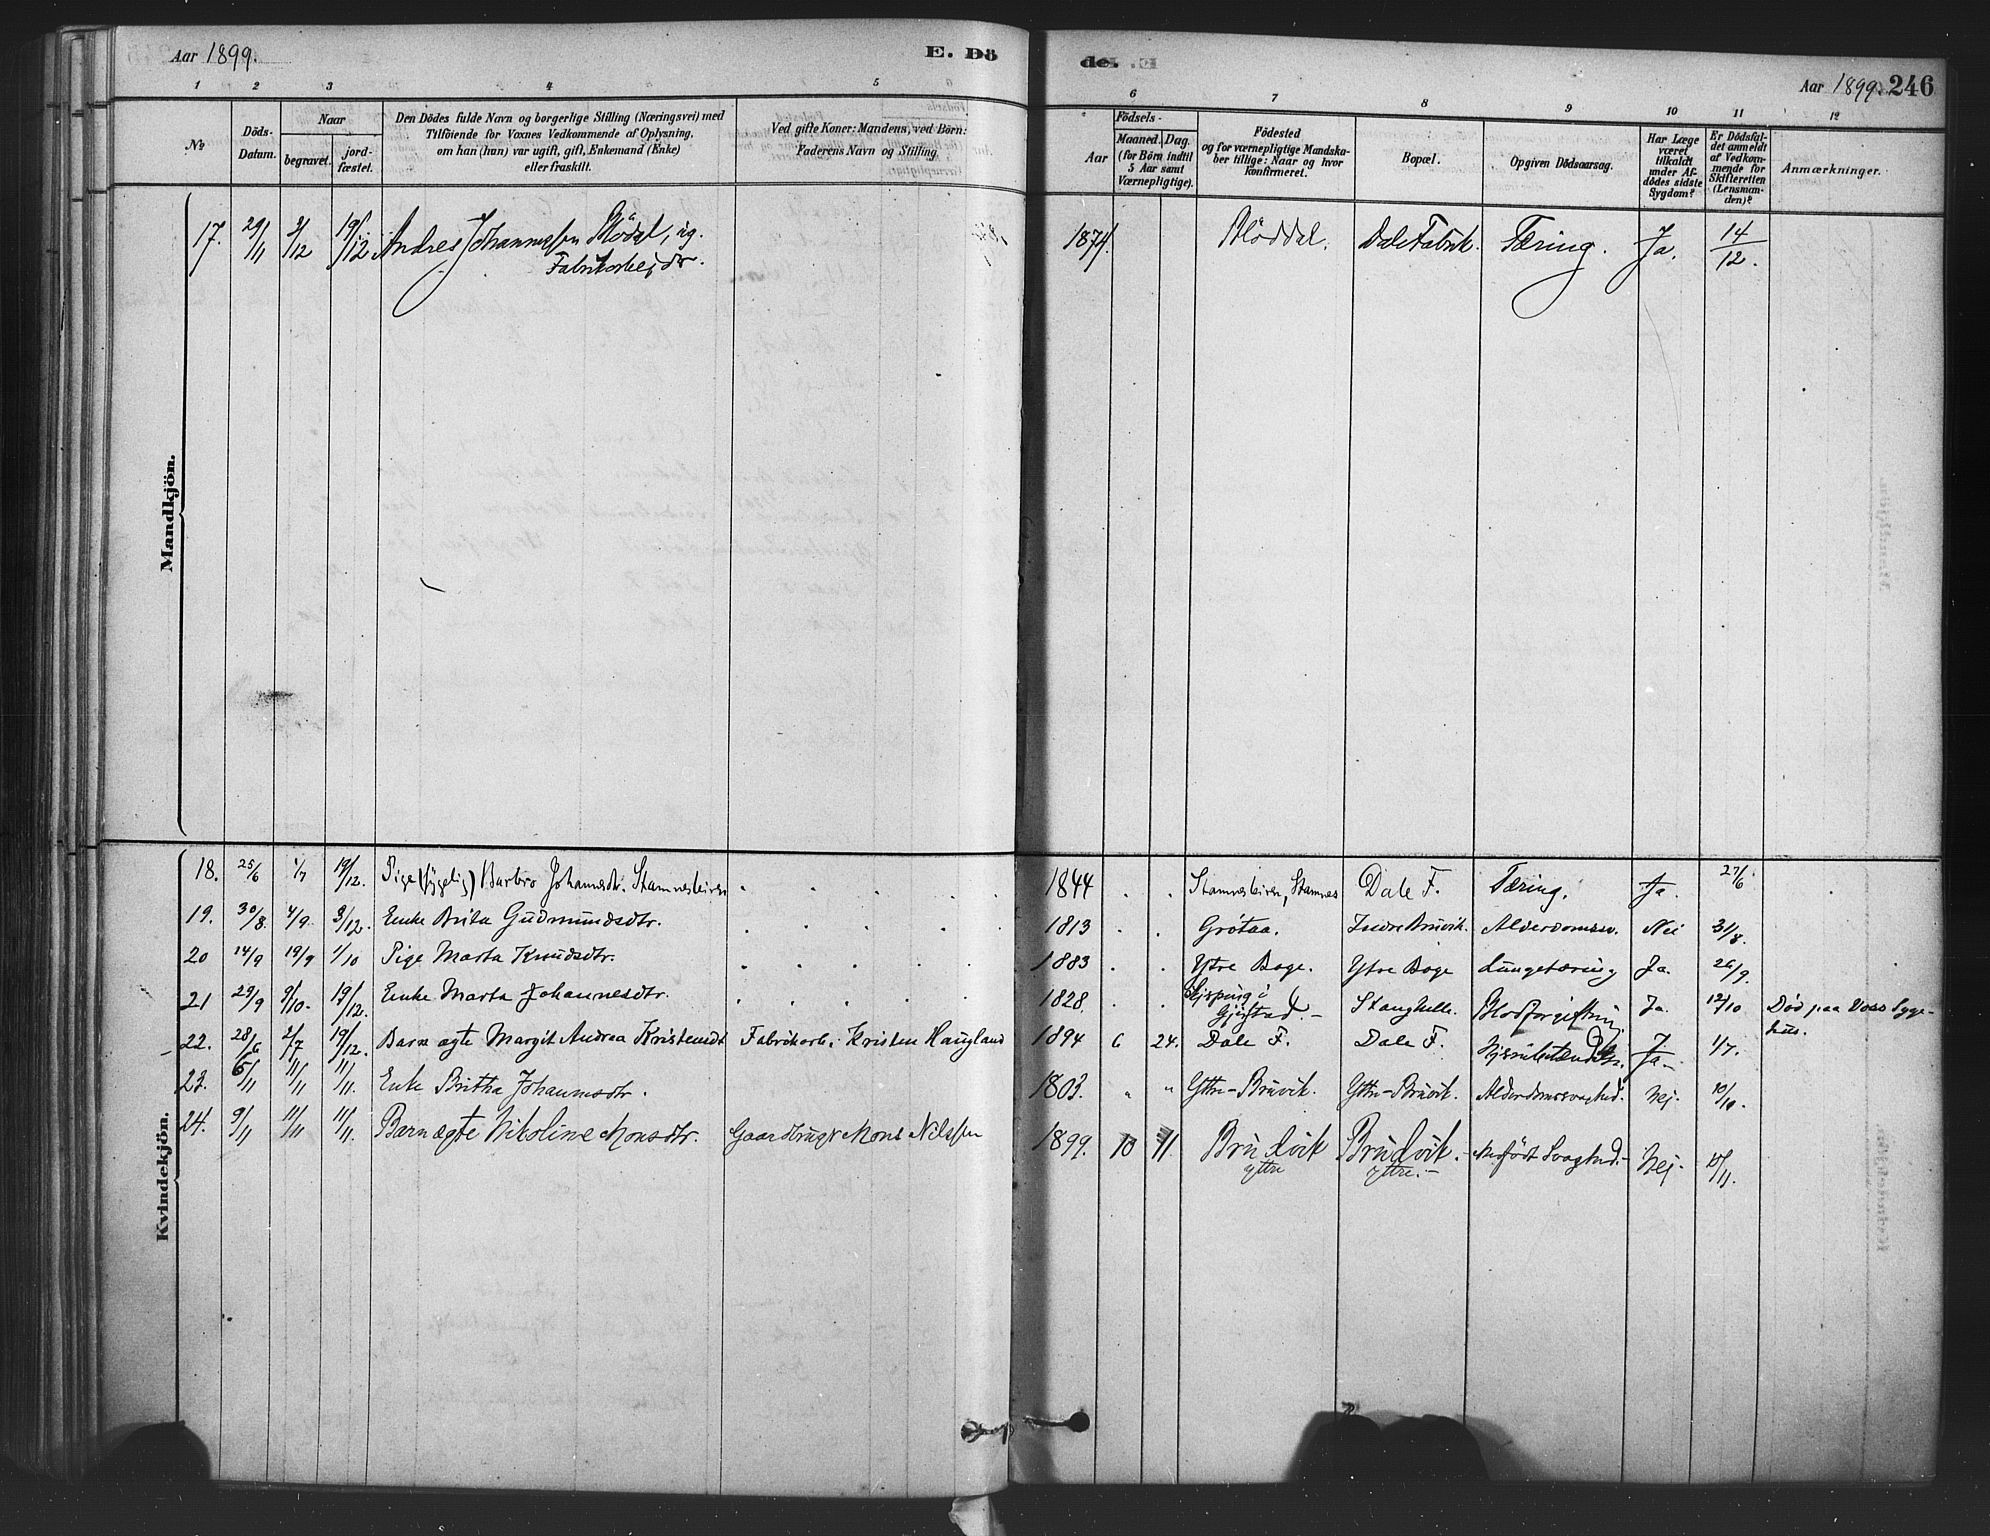 Aar 1899.
E. Dö
de.
Aar 1899.
246
1 2 3 4 5 6 7 8 9 10 11 12
No
Döds-
Datum.
Naar
begravet.
jord-
fæstet.
Den Dödes fulde Navn og borgerlige Stilling (Næringsvei) med
Tilföiende for Voxnes Vedkommende af Oplysning,
om han (hun) var ugift, gift, Enkemand (Enke)
eller fraskilt.
Ved gifte Koner: Mandens, ved Börn:
Faderens Navn og Stilling
Födsels-
Aar
Maaned. Dag.
(for Börn indtil
5 Aar samt
Værnepligtige).
Födested
og for værnepligtige Mandska-
ber tillige: Naar og hvor
konfirmeret.
Bopæl.
Opgiven Dödsaarsag.
Har Læge
været
tilkaldt
under Af-
dödes sidste
Sygdom?
Er Dödsfal-
det anmeldt
af Vedkom-
mende for
Skifteretten
(Lensman-
den)?
Anmærkninger.
Mandkjön.
17. 29/11 2/12 19/12 Andres Johannessen Blödal, ug. 1874. Bløddal. Dale Fabrik. Tæring. Ja. 14/12.
Fabrikarbejder.
Kvindekjön.
18. 25/6 1/7 19/12. Pige (sygelig) Barbro Johannesdtr. Stamnesleiren 1844 Stamnesleiren, Stamnes Dale F. Tæring. Ja. 27/6
19. 30/8. 4/9. 3/12. Enke Brita Gudmundsdtr. 1813 Grøtaa. Indre Bruvik. Alderdomssv. Nei 31/8.
20 14/9 19/9 1/10 Pige Marta Knudsdtr. 1883 Ytre Boge. Ytre Boge Lungetæring Ja. 26/9.
21 29/9 9/10. 19/12. Enke Marta Johannesdtr. 1828. i Gjerstad. Stanghelle. Blodforgiftning Ja. 12/10 Död paa Voss Syge-
hus.
22. 28/6 2/7 19/12. Barn ægte Margit Andrea Kristensdt Fabrikarb. Kristen Haugland 1894 6 24. Dale F. Dale F. Ja 1/7.
23. 6/11 11/11 11/11. Enke Britha Johannesdtr. 1803. " " Yttre-Bruvik. Yttre-Bruvik. Alderdomssvaghed. Nej. 10/10.
24. 9/11 11/11 11/11. Barn ægte Nikoline Monsdtr. Gaardbrugr Mons Nilssen 1899. 10 11. Brudvik Brudvik. Medfödt Svaghed. Nej. 15/11.
yttre yttre.